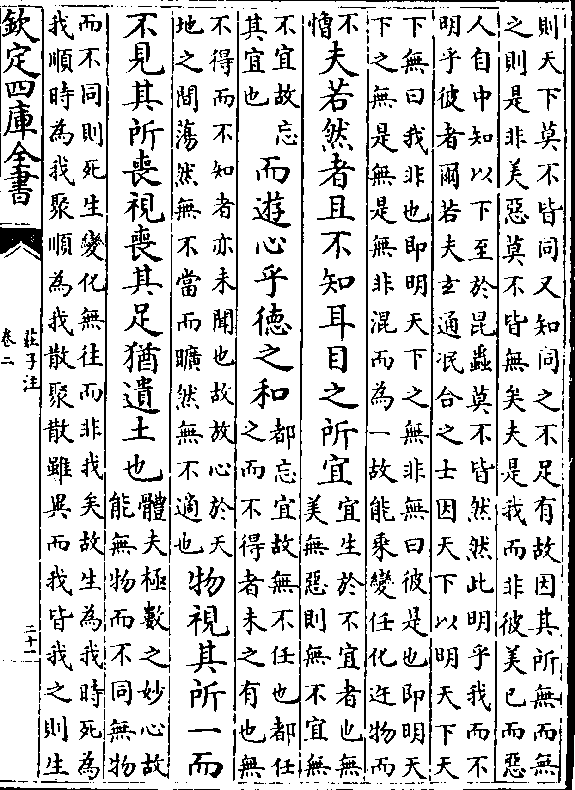 則天下莫不皆同又知同之不足有故因其所無而無
之則是非美惡莫不皆無矣夫是我而非彼美已而惡
人自中知以下至於昆蟲莫不皆然然此明乎我而不
明乎彼者爾若夫玄通冺合之士因天下以明天下天
下無曰我非也即明天下之無非無曰彼是也即明天
下之無是無是無非混而為一故能乗變任化迕物而
不
慴
夫若然者且不知耳目之所宜
宜生於不宜者也無
美無惡則無不宜無
不宜故忘
其宜也
而遊心乎徳之和
都忘宜故無不任也都任
之而不得者未之有也無
不得而不知者亦未聞也故故心於天
地之間蕩然無不當而曠然無不適也
物視其所一而
不見其所喪視喪其足猶遺土也
體夫極數之妙心故
能無物而不同無物
而不同則死生變化無往而非我矣故生為我時死為
我順時為我聚順為我散聚散雖異而我皆我之則生
欽定四庫全書
莊子注
卷二
二十一